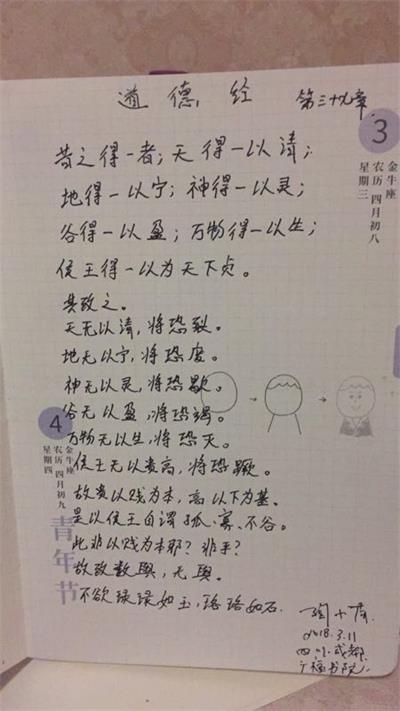 道德经 第三十九章
3
金牛座
农历四月初八
星期三
昔之得一者；天得一以清；
地得一以宁；神得一以灵；
谷得一以盈；万物得一以生；
侯王得一以为天下贞。
其致之。
天无以清，将恐裂。
地无以宁，将恐废。
神无以灵，将恐歇。
谷无以盈，将恐竭。
万物无以生，将恐灭。
侯王无以贵高，将恐蹶。
故贵以贱为本，高以下为基。
是以侯王自谓孤、寡、不谷。
此非以贱为本耶？非乎？
故致数舆，无舆。
不欲琭琭如玉，珞珞如石。
4
金牛座
农历四月初九
星期四
青年节
2018.3.11
四川成都
广福书院